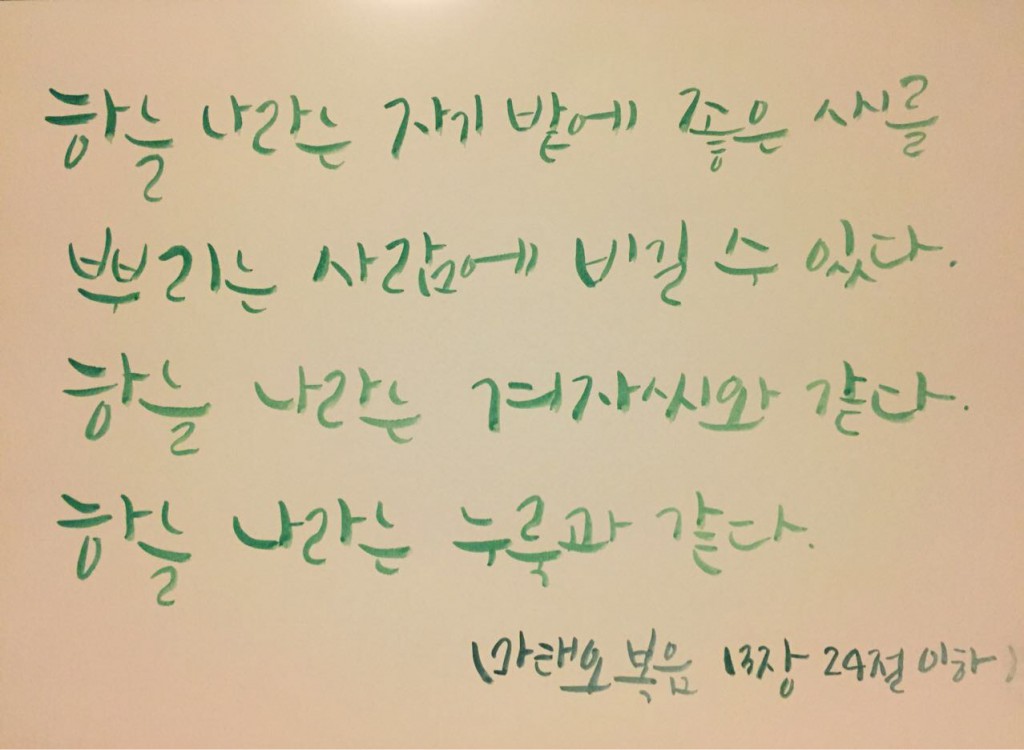 하늘 나라는 자기 밭에 좋은 씨를
뿌리는 사람에 비길 수 있다.
하늘 나라는 겨자씨와 같다.
하늘 나라는 누룩과 같다.
(마태오 복음 13장 24절 이하)